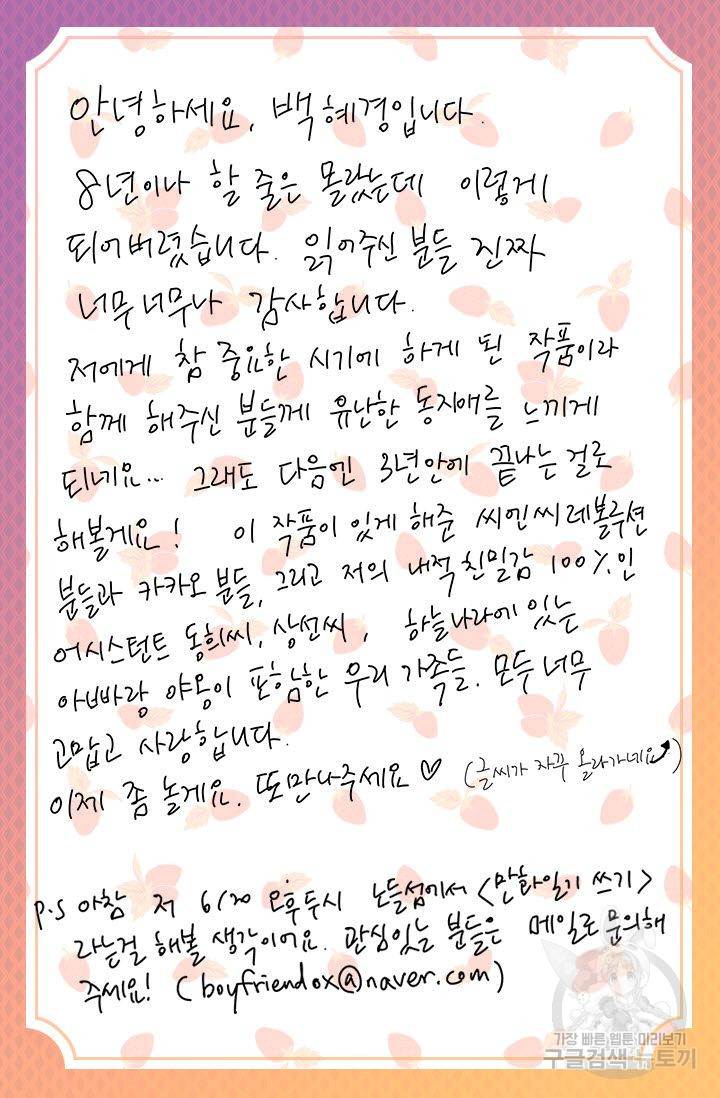 안녕하세요, 백혜경입니다.
8년이나 할 줄은 몰랐는데 이렇게
되어버렸습니다. 읽어주신 분들 진짜
너무너무나 감사합니다.
저에게 참 중요한 시기에 하게 된 작품이라
함께 해주신 분들께 유난한 동지애를 느끼게
되네요... 그래도 다음엔 3년안에 끝나는 걸로
해볼게요! 이 작품이 있게 해준 씨엔씨레볼루션
분들과 카카오 분들, 그리고 저의 내적친밀감 100%인
어시스턴트 동희씨, 상선씨, 하늘나라에 있는
아빠랑 야옹이 포함한 우리 가족들. 모두 너무
고맙고 사랑합니다.
이제 좀 놀게요. 또만나주세요 ♡ (글씨가 자꾸 올라가네요)
P.S 아참 저 6/20 오후두시 노들섬에서 <만화일기 쓰기>
라는걸 해볼 생각이어요. 관심있는 분들은 메일로 문의해
주세요! (boyfriendox@naver.com)
가장 빠른 웹툰 미리보기
구글검색 뉴토끼